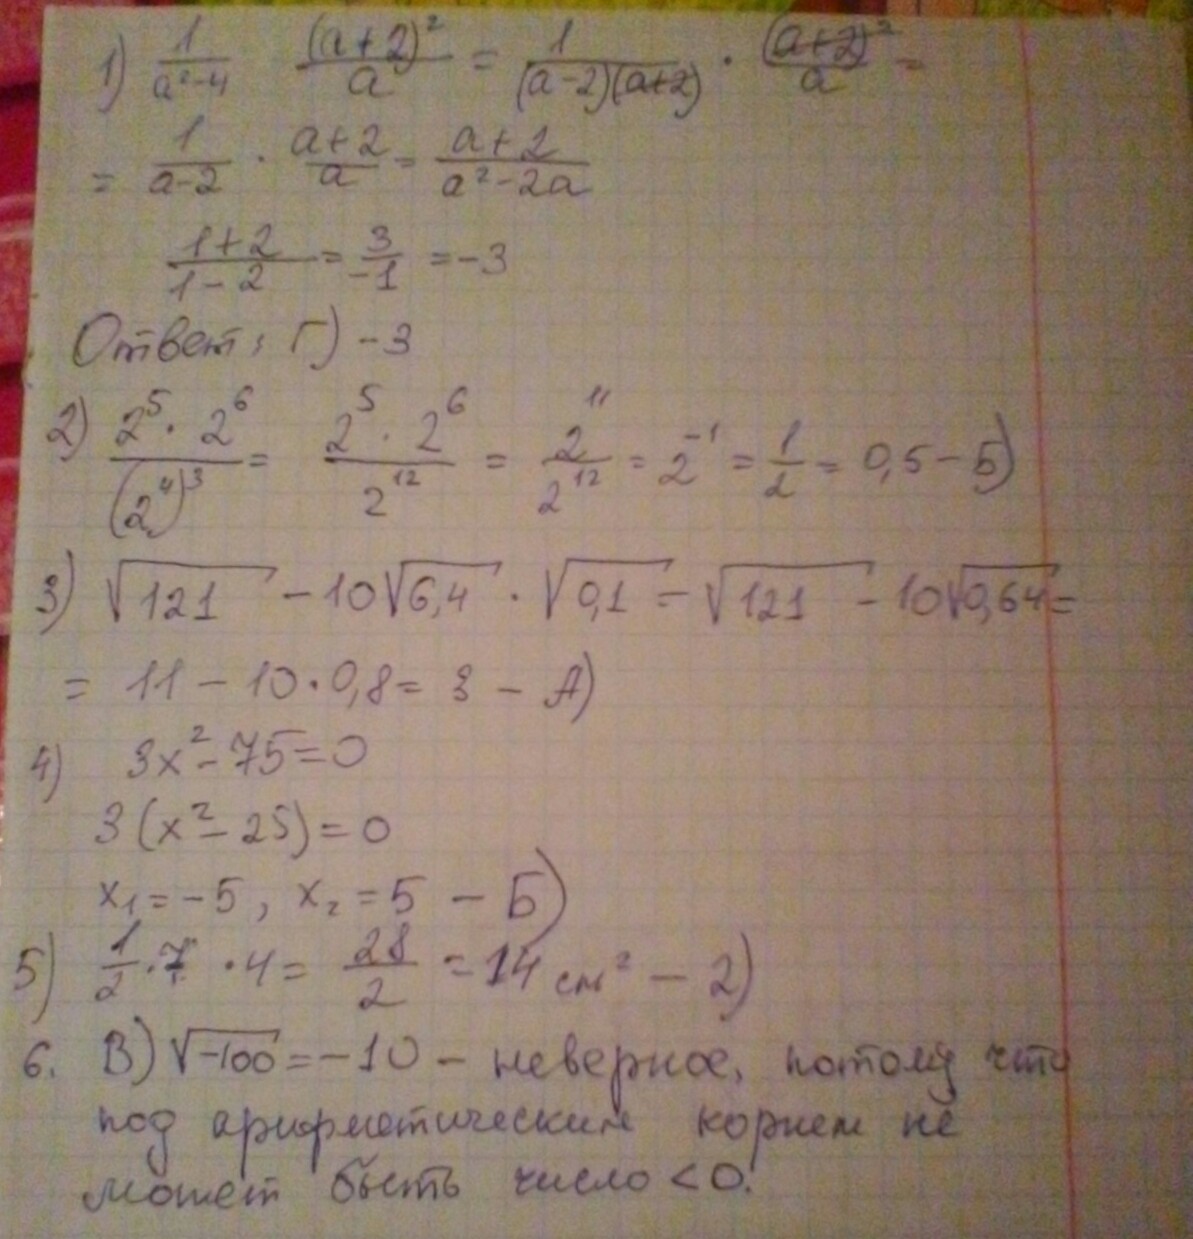 1) 1/(a²-4) (a+2)²/a = 1/((a-2)(a+2)) · (a+2)²/a =
= 1/(a-2) · (a+2)/a = (a+2)/(a²-2a)
(1+2)/(1-2) = 3/-1 = -3
Ответ: Г) -3
2) (2⁵·2⁶)/(2⁴)³ = (2⁵·2⁶)/2¹² = 2¹¹/2¹² = 2⁻¹ = 1/2 = 0,5 - Б)
3) √121 - 10√6,4 · √0,1 = √121 - 10√0,64 =
= 11 - 10·0,8 = 3 - А)
4) 3x² - 75 = 0
3(x² - 25) = 0
x₁ = -5, x₂ = 5 - Б)
5) 1/2 · 7 · 4 = 28/2 = 14 см² - 2)
6. В) √-100 = -10 - неверное, потому что
под арифметическим корнем не
может быть число < 0.